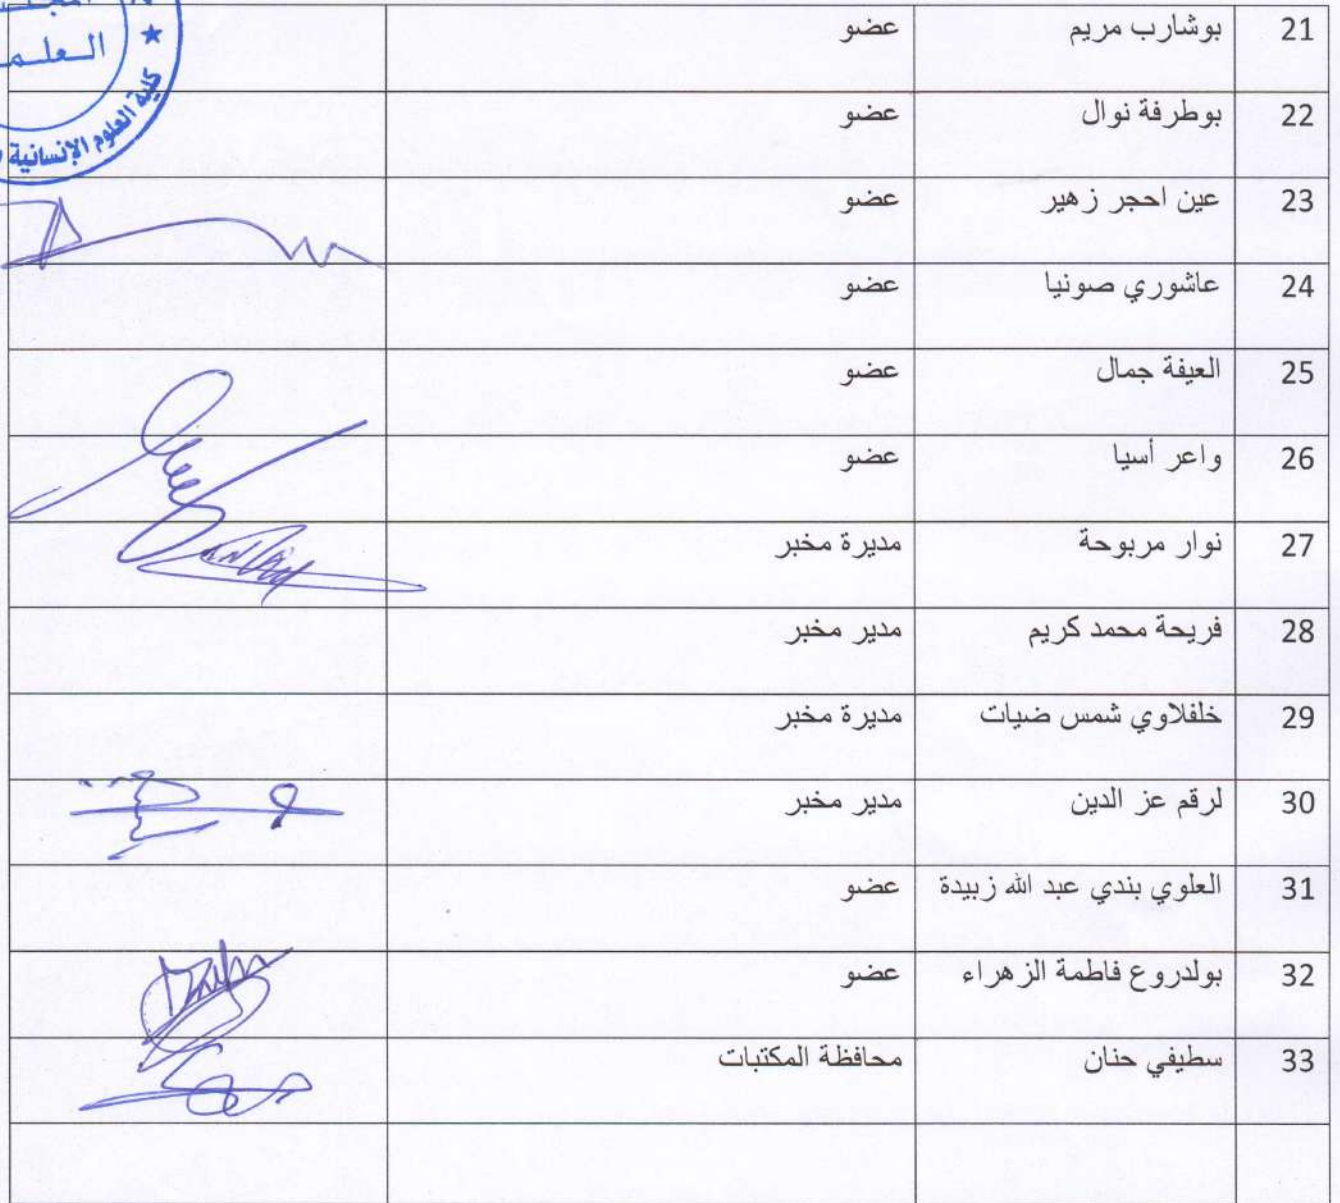 العلمـ
كلية العلوم الإنسانية
21 بوشارب مريم عضو
22 بوطرفة نوال عضو
23 عين احجر زهير عضو
24 عاشوري صونيا عضو
25 العيفة جمال عضو
26 واعر أسيا عضو
27 نوار مربوحة مديرة مخبر
28 فريحة محمد كريم مدير مخبر
29 خلفلاوي شمس ضيات مديرة مخبر
30 لرقم عز الدين مدير مخبر
31 العلوي بندي عبد الله زبيدة عضو
32 بولدروع فاطمة الزهراء عضو
33 سطيفي حنان محافظة المكتبات